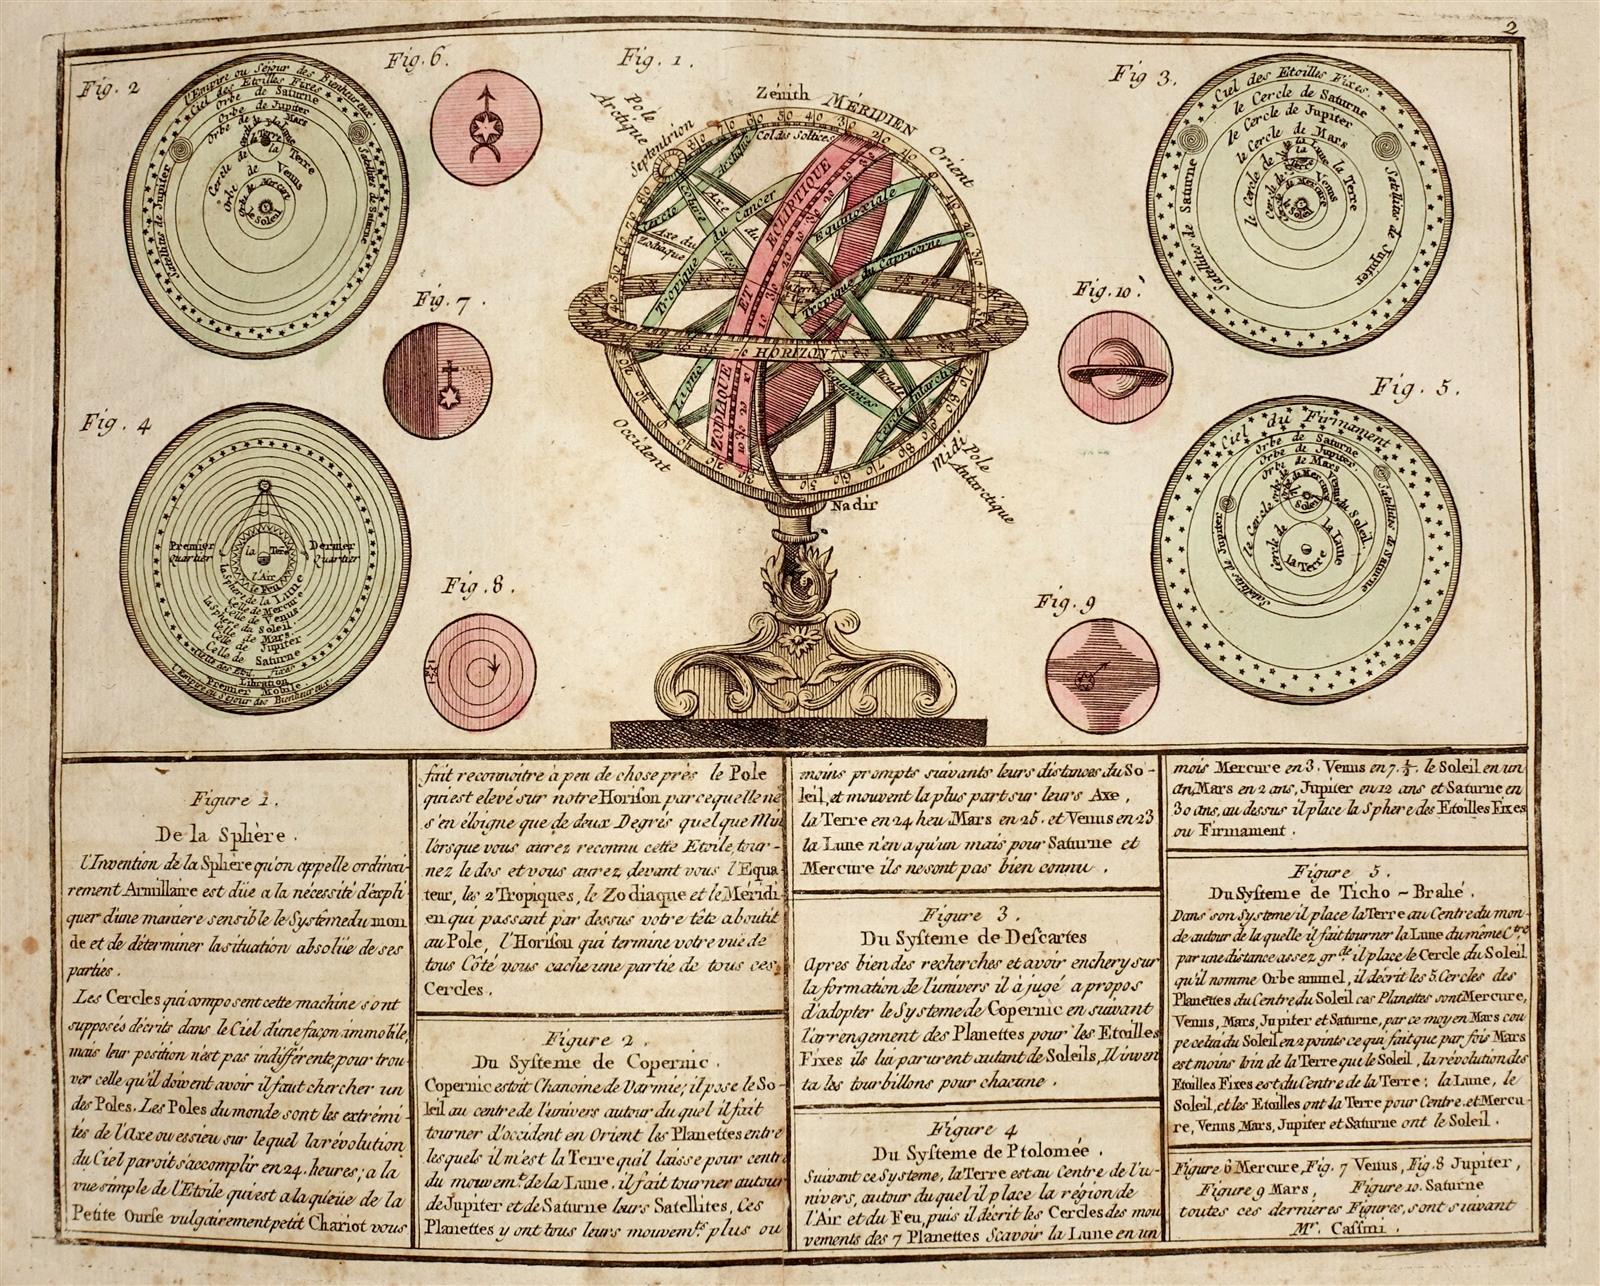 2
Fig. 2
Fig. 6.
Fig. 1.
Fig 3.
Fig. 7.
Fig. 10.
Fig. 4
Fig. 5.
Fig. 8.
Fig. 9
l'Empire ou Séjour des Bienheureux
Ciel des Etoilles Fixes
Orbe de Saturne
Orbe de Jupiter
Orbe de Mars
Cercle de la Terre
Orbe de Venus
Orbe de Mercure
le Soleil
Satellites de Jupiter
Satellites de Saturne
Zénith
MÉRIDIEN
Pole Arctique
Septentrion
Orient
Col. des Solstices
Cercle Arctique
Tropique du Cancer
ECLIPTIQUE
Equinoxiale
Axe du Zodiaque
Tropique du Capricorne
ET
HORIZON
ZODIAQUE
Occident
Midi
Pole Antarctique
Nadir
Ciel des Etoilles Fixes
le Cercle de Saturne
le Cercle de Jupiter
le Cercle de Mars
le Cercle de la Terre
la Lune
Cercle de Venus
de Mercure
le Soleil
Satellites de Saturne
Satellites de Jupiter
Premier Quartier
Dernier Quartier
la Terre
l'Air
le Feu
la Sphere de la Lune
Celle de Mercure
Celle de Venus
la Sphere du Soleil
Celle de Mars
Celle de Jupiter
Celle de Saturne
Celle des Etoil. fixes
Libration
Premier Mobile
l'Empire ou Séjour des Bienheureux
Ciel du Firmament
Orbe de Saturne
Orbe de Jupiter
Orbe de Mars
de Mercure
Soleil
le Cercle du Soleil
Cercle de la Lune
la Terre
Satellites de Jupiter
Satellites de Saturne
Figure 1.
De la Sphère.
l'Invention de la Sphère qu'on appelle ordinai-
rement Armillaire est düe a la nécessité d'expli
quer d'une maniere sensible le Système du mon
de et de déterminer la situation absolüe de ses
parties.
Les Cercles qui composent cette machine sont
supposés décrits dans le Ciel d'une façon immobile,
mais leur position n'est pas indifférente, pour trou
ver celle qu'il doivent avoir il faut chercher un
des Poles. Les Poles du monde sont les extrémi
tés de l'Axe ou essieu sur lequel la révolution
du Ciel paroit s'accomplir en 24. heures; a la
vue simple de l'Etoile qui est a la queüe de la
Petite Ourse vulgairement petit Chariot vous
fait reconnoitre à peu de chose près le Pole
qui est elevé sur notre Horison parce quelle ne
s'en éloigne que de deux Degrés quelque Min
lorsque vous aurez reconnu cette Etoile, tour-
nez le dos et vous aurez devant vous l'Equa
teur, les 2 Tropiques, le Zodiaque et le Méridi-
en qui passant par dessus votre tête aboutit
au Pole, l'Horison qui termine votre vue de
tous Côté vous cache une partie de tous ces
Cercles.
Figure 2.
Du Systeme de Copernic.
Copernic estoit Chanoine de Varmie; il pose le So-
leil au centre de l'univers autour du quel il fait
tourner d'occident en Orient les Planettes entre
lesquels il m'est la Terre qu'il laisse pour centre
du mouvemt. de la Lune. il fait tourner autour
de Jupiter et de Saturne leurs Satellites, Ces
Planettes y ont tous leurs mouvemts. plus ou
moins prompts suivants leurs distances du So-
leil, et mouvent la plus part sur leurs Axe,
la Terre en 24 heu Mars en 25. et Venus en 23
la Lune n'en a qu'un mais pour Saturne et
Mercure ils ne sont pas bien connu.
Figure 3.
Du Systeme de Descartes
Apres bien des recherches et avoir enchery sur
la formation de l'univers il à jugé a propos
d'adopter le Systeme de Copernic en suivant
l'arrengement des Planettes pour les Etoilles
Fixes ils lui parurent autant de Soleils, Il inven
ta les tourbillons pour chacune.
Figure 4
Du Systeme de Ptolomée.
Suivant ce Systeme, la Terre est au Centre de l'u-
nivers, autour du quel il place la région de
l'Air et du Feu, puis il décrit les Cercles des mou
vements des 7 Planettes Scavoir la Lune en un
mois Mercure en 3. Venus en 7. ½. le Soleil en un
An, Mars en 2 ans, Jupiter en 12 ans et Saturne en
30 ans, au dessus il place la Sphere des Etoilles Fixes
ou Firmament.
Figure 5.
Du Systeme de Ticho-Brahé.
Dans son Systeme il place la Terre au Centre du mon-
de autour de la quelle il fait tourner la Lune du même Ctre
par une distance assez grde. il place le Cercle du Soleil
qu'il nomme Orbe annuel, il décrit les 5. Cercles des
Planettes du Centre du Soleil ces Planettes sont Mercure,
Venus, Mars, Jupiter et Saturne, par ce moyen Mars cou
pe celui du Soleil en 2 points ce qui fait que par fois Mars
est moins loin de la Terre que le Soleil, la révolution des
Etoilles Fixes est du Centre de la Terre; la Lune, le
Soleil, et les Etoilles ont la Terre pour Centre. et Mercu-
re, Venus, Mars, Jupiter et Saturne ont le Soleil.
Figure 6 Mercure, Fig. 7 Venus, Fig. 8 Jupiter,
Figure 9 Mars, Figure 10. Saturne
toutes ces dernieres Figures, sont suivant
Mr. Cassini.